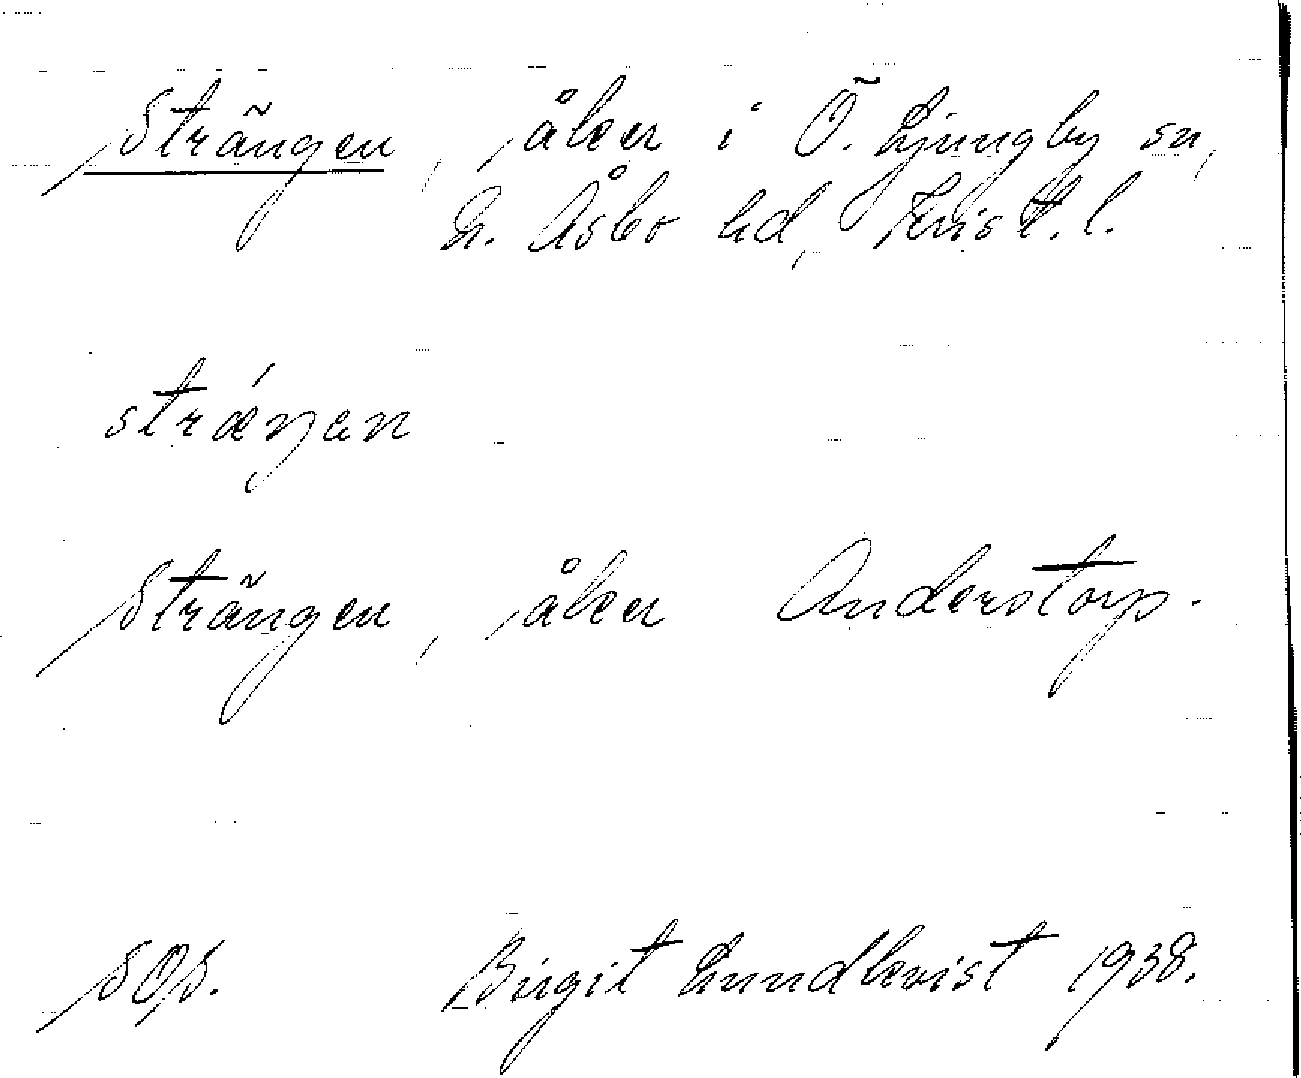 Strängen, åker i Ö. Ljungby sn,
N. Åsbo hd, Krist. l.
stráŋən
Strängen, åker Anderstorp.
SOS. Birgit Lundkvist 1938.